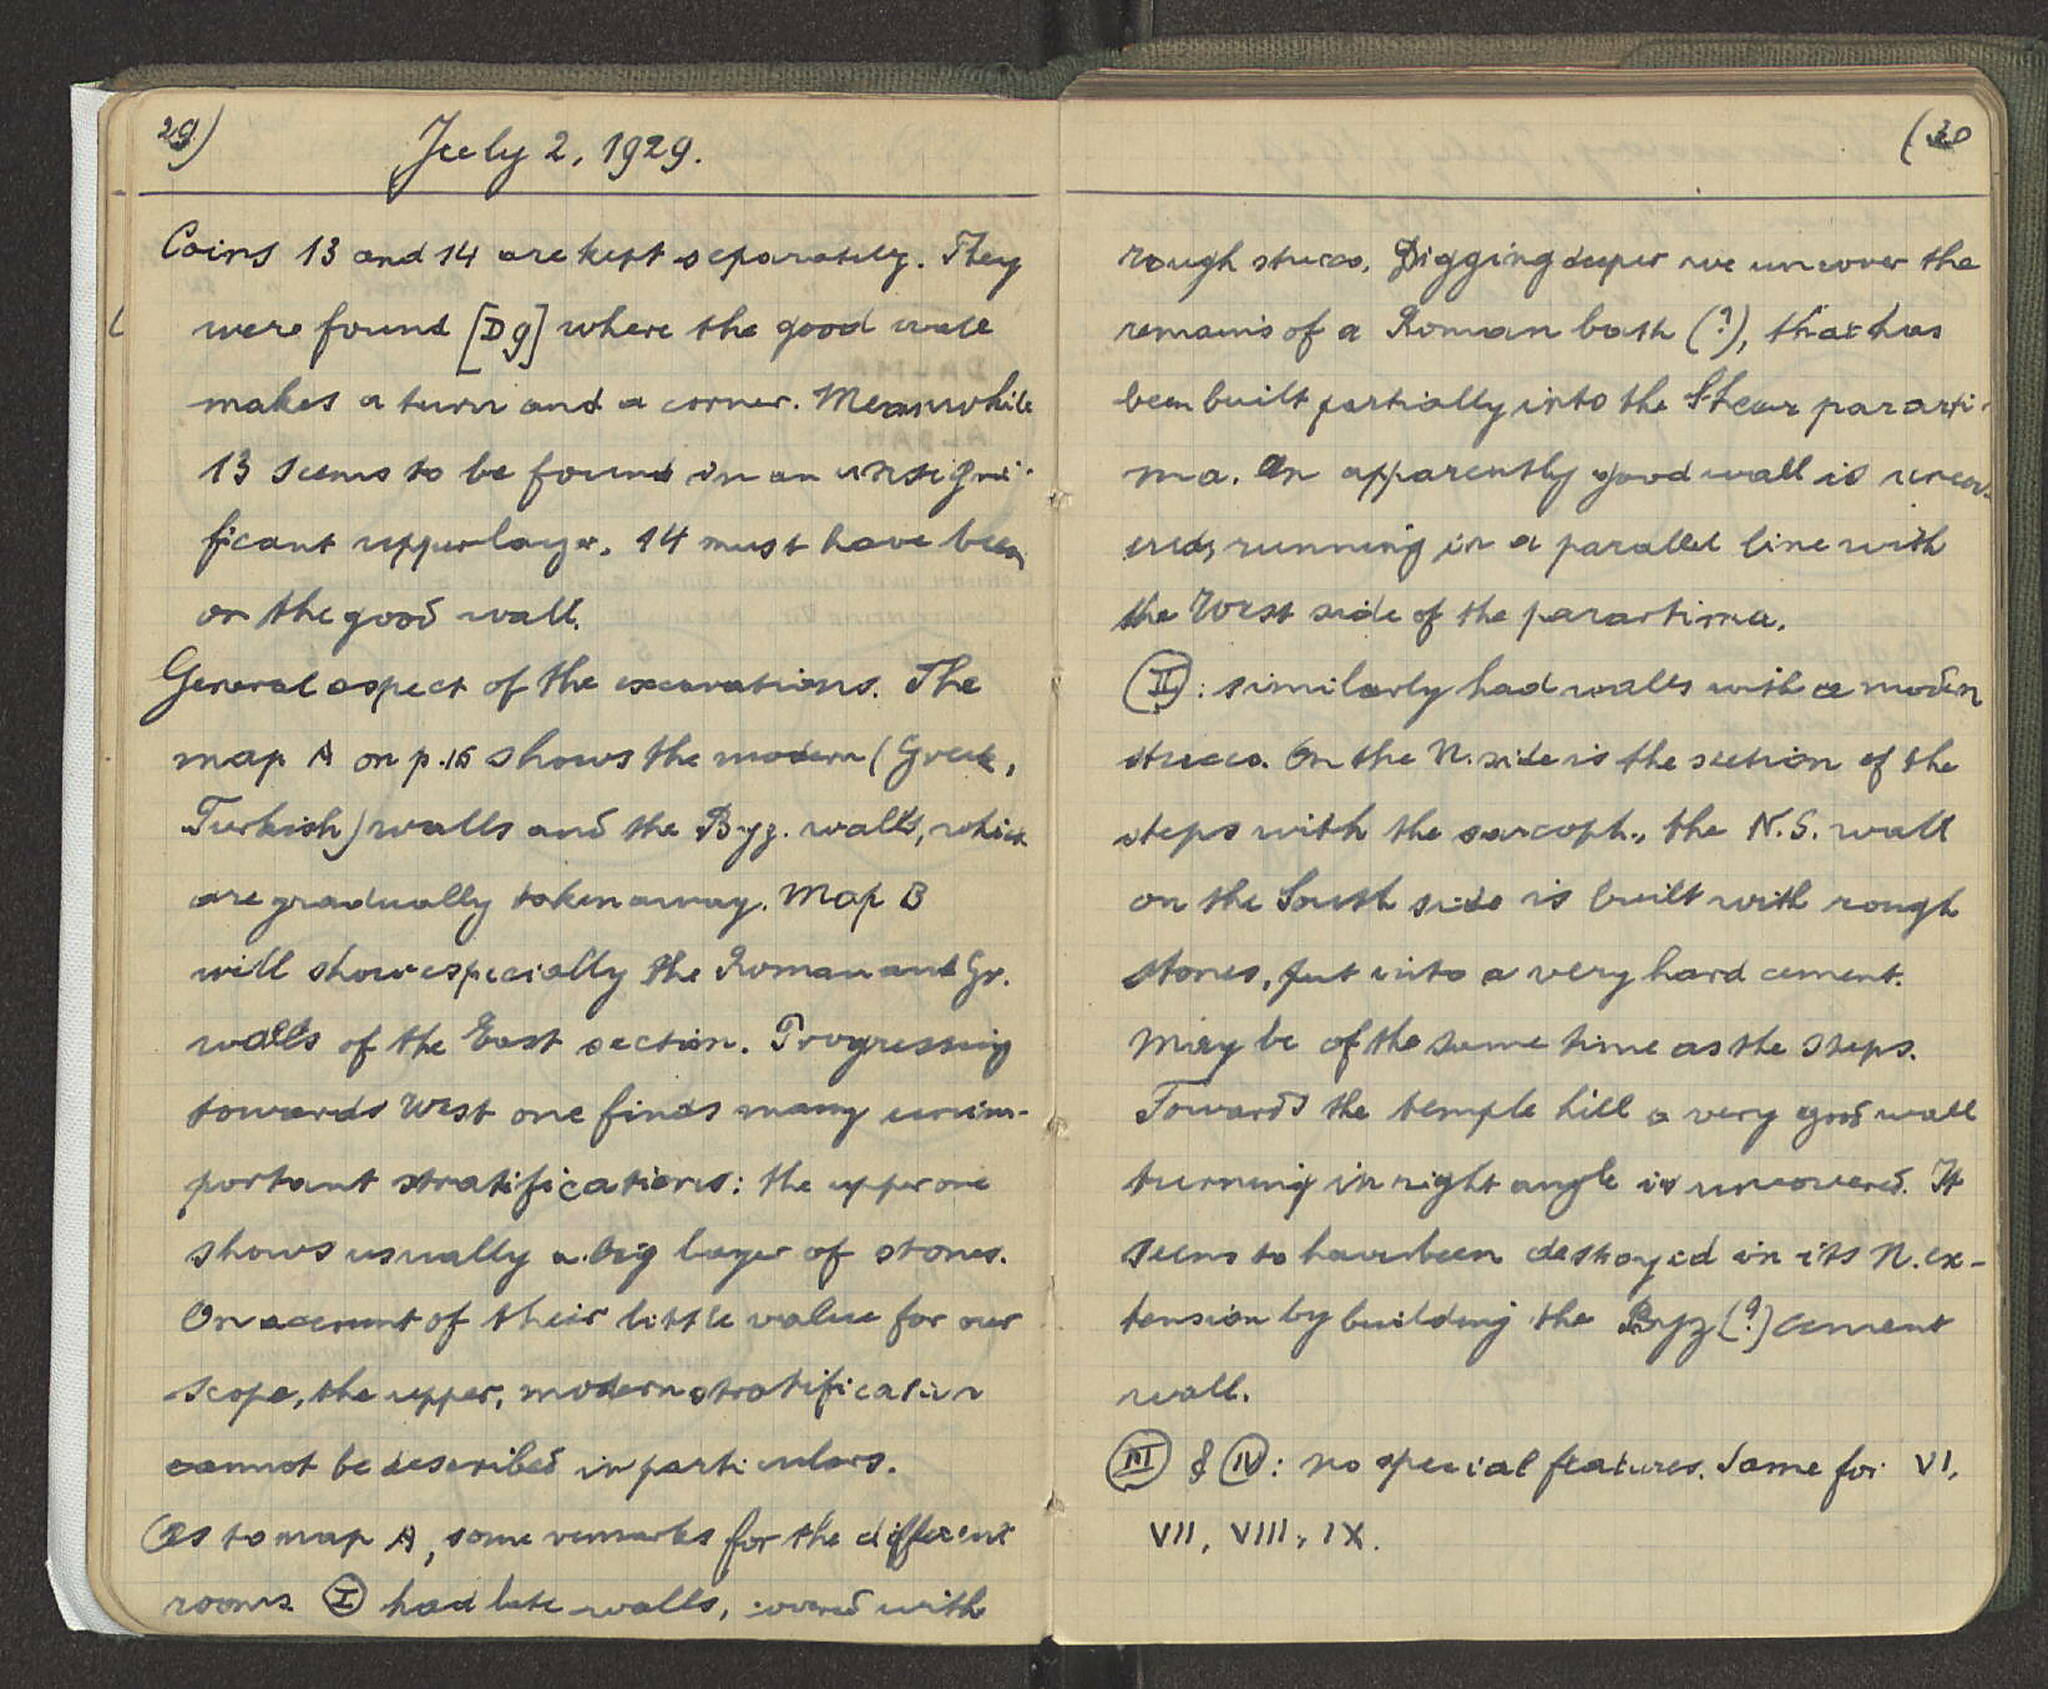 29)
July 2, 1929.
Coins 13 and 14 are kept separately. They
were found [D9] where the good wall
makes a turn and a corner. Meanwhile
13 seems to be found in an insigni-
ficant upper layer, 14 must have been
on the good wall.
General aspect of the excavations. The
map A on p. 16 shows the modern (Greek,
Turkish) walls and the Byz. walls, which
are gradually taken away. Map B
will show especially the Roman and Gr.
walls of the East section. Progressing
towards West one finds many unim-
portant stratifications: the upper one
shows usually a big layer of stones.
On account of their little value for our
scope, the upper, modern stratification
cannot be described in particulars.
As to map A, some remarks for the different
rooms. I had late walls, covered with
(30
rough stucco. Digging deeper we uncover the
remains of a Roman bath (?), that has
been built partially into the Thear pararti-
ma. An apparently good wall is uncov-
ered, running in a parallel line with
the West side of the parartima.
II: similarly had walls with a modern
stucco. On the N. side is the section of the
steps with the sarcoph., the N.S. wall
on the South side is built with rough
stones, put into a very hard cement.
May be of the same time as the steps.
Towards the temple hill a very good wall
turning in right angle is uncovered. It
seems to have been destroyed in its N. ex-
tension by building the Byz (?) cement
wall.
III & IV: no special features. Same for VI,
VII, VIII, IX.